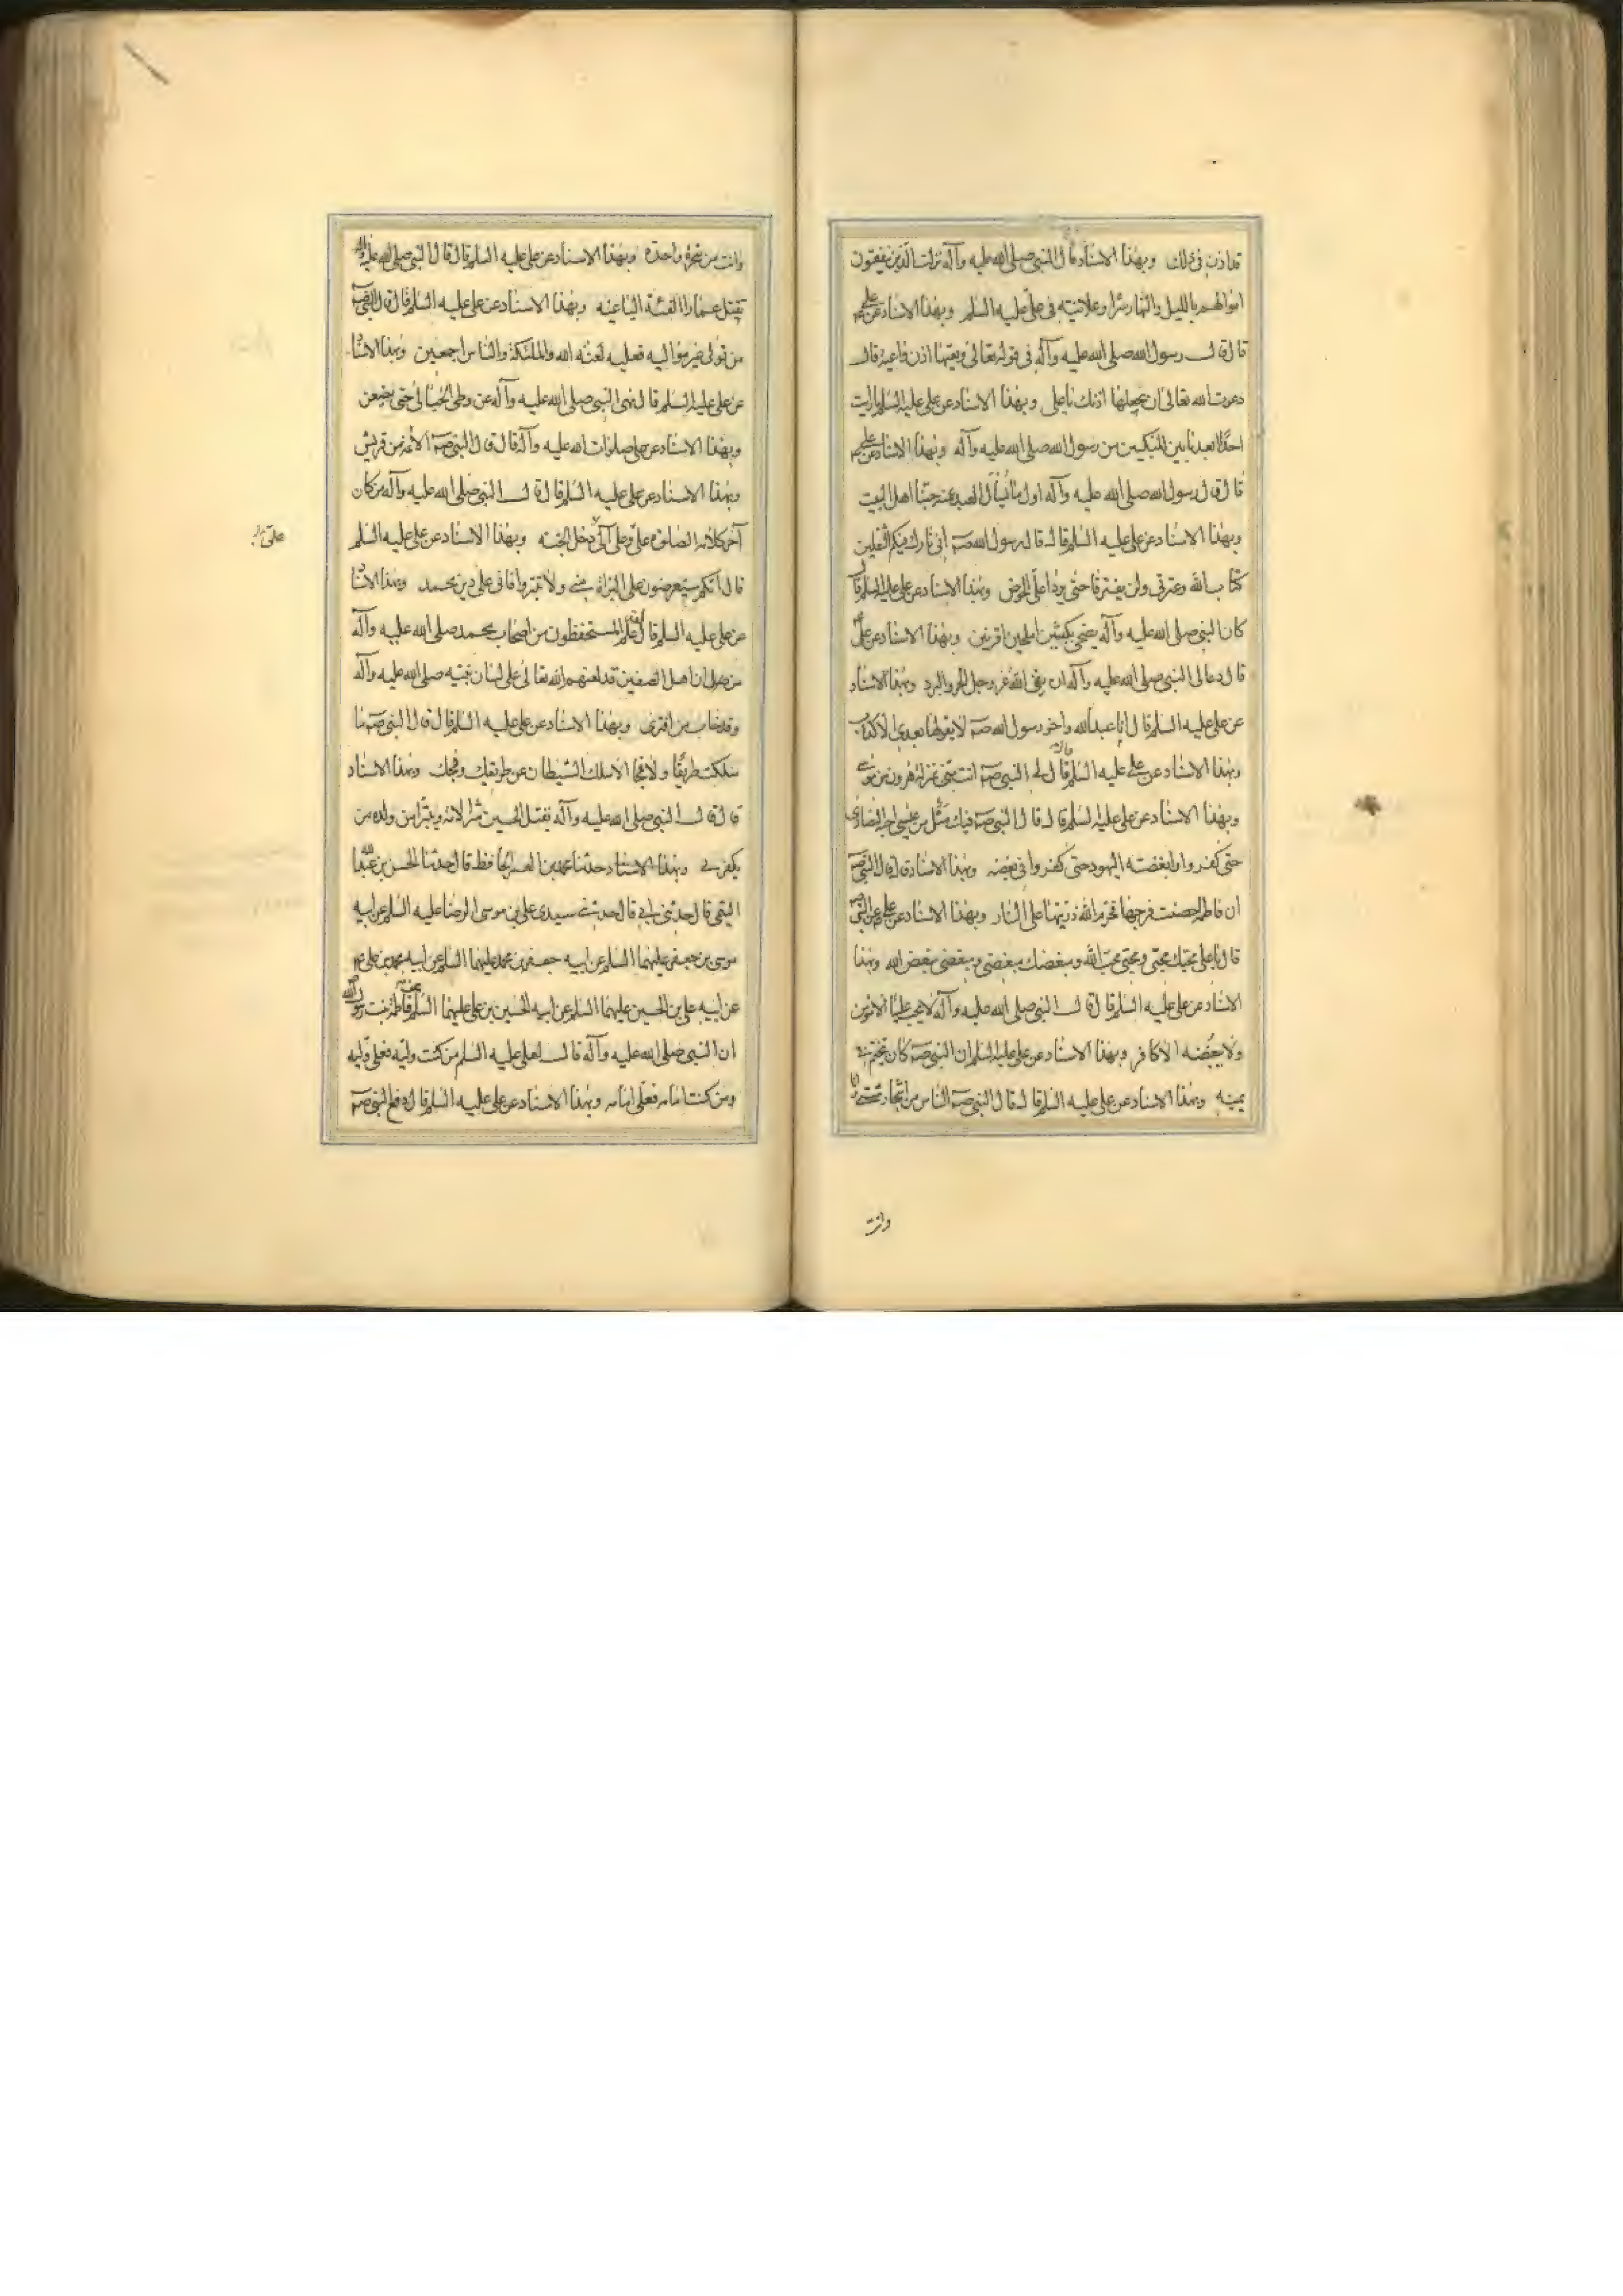 قد اذن فى ذلك وبهذا الاسناد قال النبى صلى الله عليه وآله نزلت الذين ينفقون
اموالهم بالليل والنهار سرا وعلانية فى على عليه السلم وبهذا الاسناد عن على ع
قال قال رسول الله صلى الله عليه وآله فى قوله تعالى وتعيها اذن واعية قال
دعوت الله تعالى ان يجعلها اذنك ياعلى وبهذا الاسناد عن على عليه السلم ما رايت
احدا ابعد ما بين المنكبين من رسول الله صلى الله عليه وآله وبهذا الاسناد عن على ع
قال قال رسول الله صلى الله عليه وآله اول ما يسأل العبد عنه حبنا اهل البيت
وبهذا الاسناد عن على عليه السلم قال قال رسول الله صه انى تارك فيكم الثقلين
كتاب الله وعترتى ولن يفترقا حتى يردا على الحوض وبهذا الاسناد عن على عليه السلم قال
كان النبى صلى الله عليه وآله يضحى بكبشين املحين اقرنين وبهذا الاسناد عن على
قال دعا لى النبى صلى الله عليه وآله ان يقى الله عز وجل الحر والبرد وبهذا الاسناد
عن على عليه السلم قال انا عبد الله واخو رسول الله صه لا يقولها بعدى الا كذاب
وبهذا الاسناد عن على عليه السلم قال قال لى النبى صه انت منى بمنزلة هرون من موسى
وبهذا الاسناد عن على عليه السلم قال قال النبى صه فيك مثل من عيسى احبه النصارى
حتى كفروا وابغضته اليهود حتى كفروا فى بغضه وبهذا الاسناد قال قال النبى صه
ان فاطمة احصنت فرجها فحرم الله ذريتها على النار وبهذا الاسناد عن على ع عن النبى صه
قال ياعلى محبك محبى ومحبى محب الله ومبغضك مبغضى ومبغضى مبغض الله وبهذا
الاسناد عن على عليه السلم قال قال النبى صلى الله عليه وآله لا يحب عليا الا مؤمن
ولا يبغضه الا كافر وبهذا الاسناد عن على عليه السلم ان النبى صه كان يتختم فى
يمينه وبهذا الاسناد عن على عليه السلم قال قال النبى صه الناس من اشجار شتى وانا
وانت
وانت من شجرة واحدة وبهذا الاسناد عن على عليه السلم قال قال النبى صلى الله عليه وآله
تقتل عمارا الفئة الباغية وبهذا الاسناد عن على عليه السلم قال قال النبى صه
من تولى غير مواليه فعليه لعنة الله والملئكة والناس اجمعين وبهذا الاسناد
عن على عليه السلم قال نهى النبى صلى الله عليه وآله عن وطى الحبالى حتى يضعن
وبهذا الاسناد عن على صلوات الله عليه وآله قال قال النبى صه الائمة من قريش
وبهذا الاسناد عن على عليه السلم قال قال النبى صلى الله عليه وآله من كان
آخر كلامه الصلوة على وعلى آلى دخل الجنة وبهذا الاسناد عن على عليه السلم
قال انكم ستعرضون على البراة منى ولا تتبروا فانى على دين محمد وبهذا الاسناد
عن على عليه السلم قال لقد علم المستحفظون من اصحاب محمد صلى الله عليه وآله
ان اهل الصفين قد لعنهم الله تعالى على لسان نبيه صلى الله عليه وآله
وقد خاب من افترى وبهذا الاسناد عن على عليه السلم قال قال النبى صه ما
سلكت طريقا ولا فجا الا سلك الشيطان عن طريقك وفجك وبهذا الاسناد
قال قال النبى صلى الله عليه وآله يقتل الحسين شر الامة ويتبرا من ولده من
يكفر بى وبهذا الاسناد حدثنا محمد بن العمر الحافظ قال حدثنا الحسن بن عبد الله
التميمى قال حدثنى ابى قال حدثنى سيدى على بن موسى الرضا عليه السلم عن ابيه
موسى بن جعفر عليهما السلم عن ابيه جعفر بن محمد عليهما السلم عن ابيه محمد بن على ع
عن ابيه على بن الحسين عليهما السلم عن ابيه الحسين بن على عليهما السلم عن فاطمة بنت رسول الله
ان النبى صلى الله عليه وآله قال لعلى عليه السلم من كنت وليه فعلى وليه
ومن كنت امامه فعلى امامه وبهذا الاسناد عن على عليه السلم قال دفع النبى صه